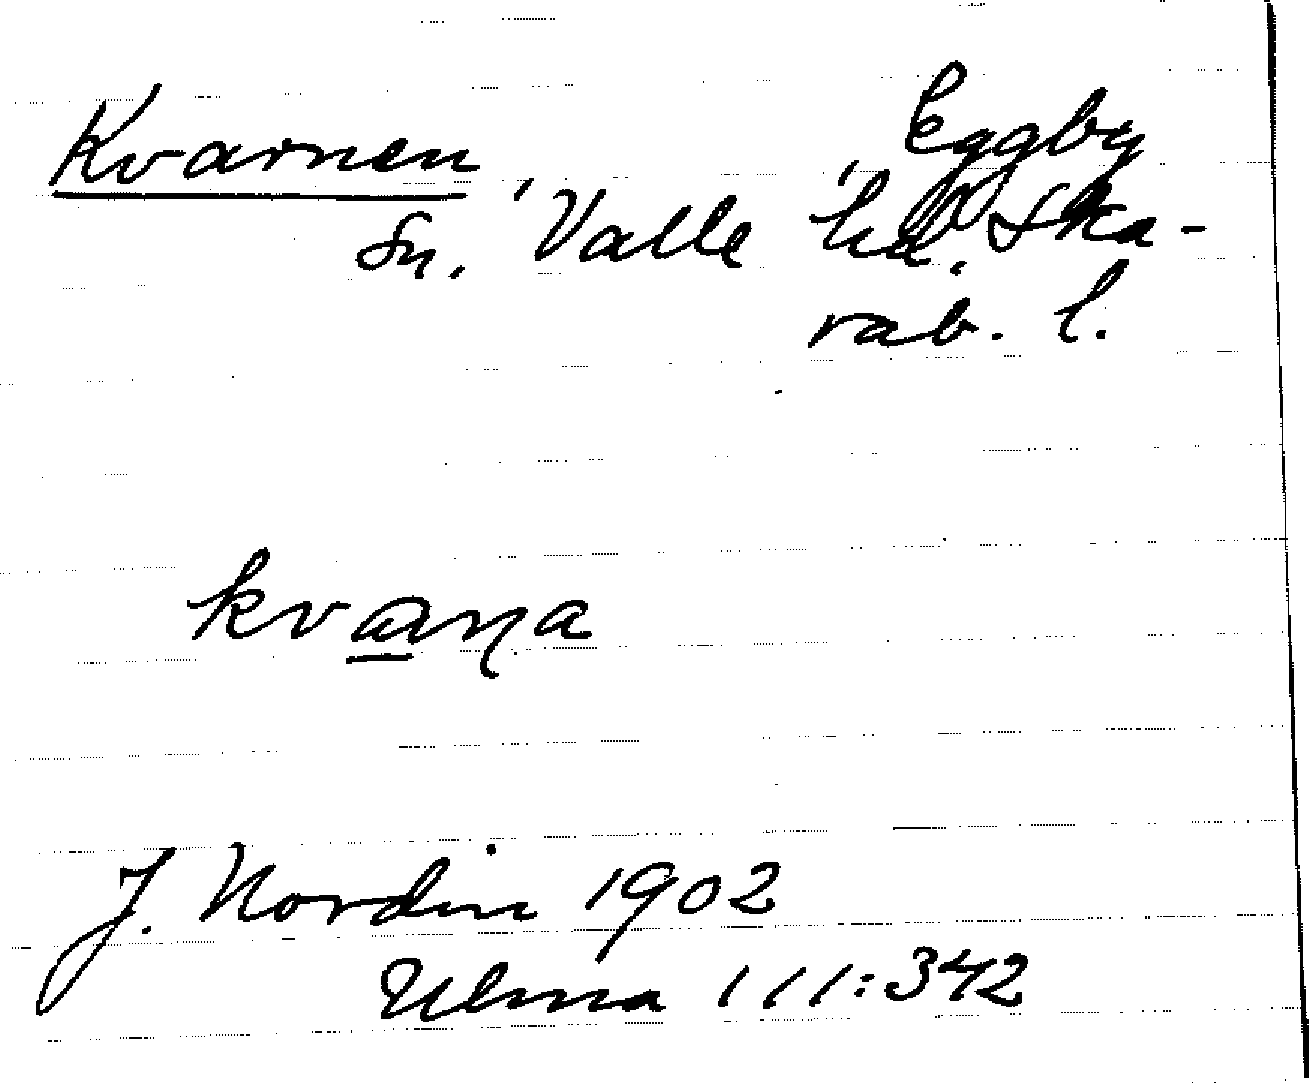 Kvarnen, Eggby
sn. Valle hd. Ska-
rab. l.
kvaṉa
J. Nordin 1902
Ulma 111:342